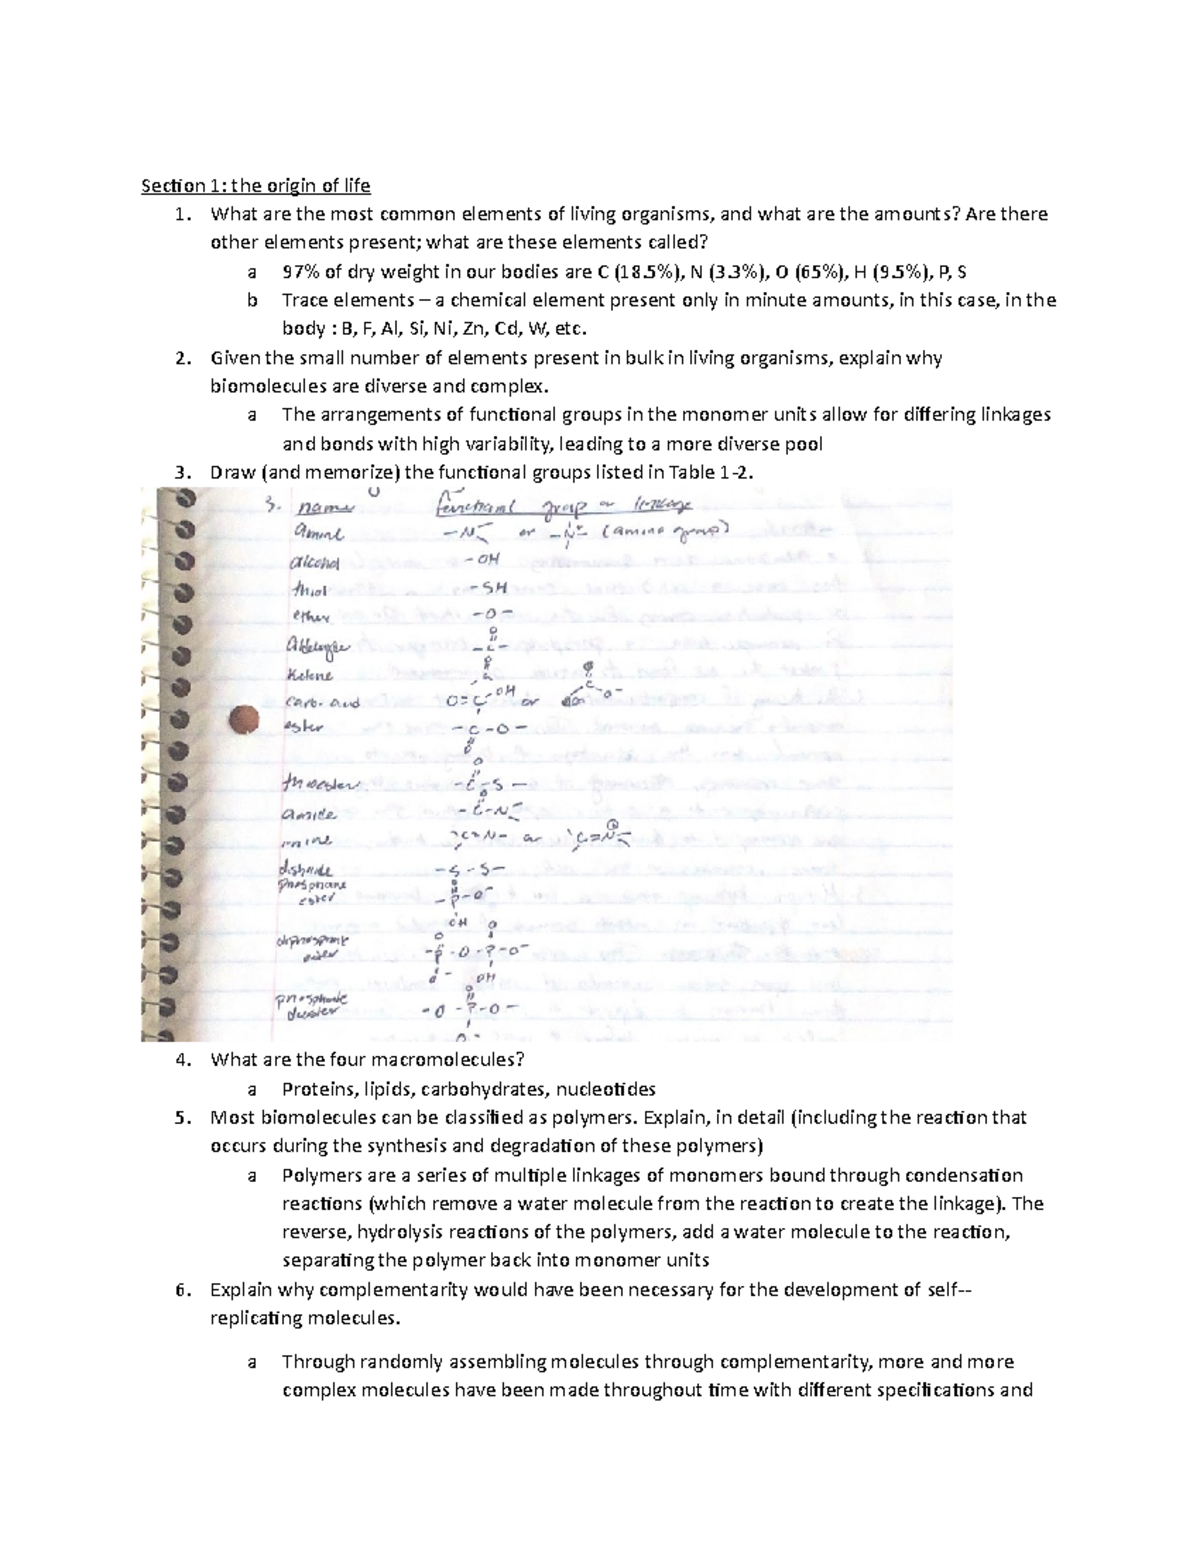 Section 1: the origin of life
1. What are the most common elements of living organisms, and what are the amounts? Are there
other elements present; what are these elements called?
a 97% of dry weight in our bodies are C (18.5%), N (3.3%), O (65%), H (9.5%), P, S
b Trace elements – a chemical element present only in minute amounts, in this case, in the
body : B, F, Al, Si, Ni, Zn, Cd, W, etc.
2. Given the small number of elements present in bulk in living organisms, explain why
biomolecules are diverse and complex.
a The arrangements of functional groups in the monomer units allow for differing linkages
and bonds with high variability, leading to a more diverse pool
3. Draw (and memorize) the functional groups listed in Table 1-2.
3. name functional group or linkage
amine -N or -N+- (amino group)
alcohol -OH
thiol -SH
ether -O-
O
-C-
Ketone
carb. acid O=C-OH or C O-
ester -C-O-
O
O
thioester -C-S-
O
amide -C-N
imine C=N- or C=N
-S-S-
O
ester -P-O-
OH O
O
-P-O-P-O-
O- OH
O
-O-P-O-
O-
4. What are the four macromolecules?
a Proteins, lipids, carbohydrates, nucleotides
5. Most biomolecules can be classified as polymers. Explain, in detail (including the reaction that
occurs during the synthesis and degradation of these polymers)
a Polymers are a series of multiple linkages of monomers bound through condensation
reactions (which remove a water molecule from the reaction to create the linkage). The
reverse, hydrolysis reactions of the polymers, add a water molecule to the reaction,
separating the polymer back into monomer units
6. Explain why complementarity would have been necessary for the development of self--
replicating molecules.
a Through randomly assembling molecules through complementarity, more and more
complex molecules have been made throughout time with different specifications and